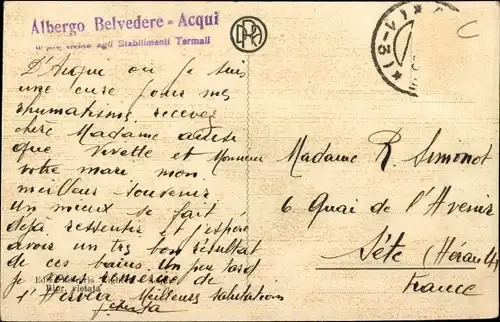 Albergo Belvedere - Acqui
il più vicino agli Stabilimenti Termali
D'Acqui où je suis
une cure pour mes
rhumatismes, recevez
chère Madame ainsi
que Vivette et Monsieur
votre mari mon
meilleur souvenir
Un mieux se fait
déjà ressentir et j'espère
avoir un très bon résultat
de ces bains Un peu tard
je vous remercie de
Meilleures Salutations
Madame R. Simonot
6 Quai de l'Avenir
Sète (Hérault)
France
Ripr. vietata